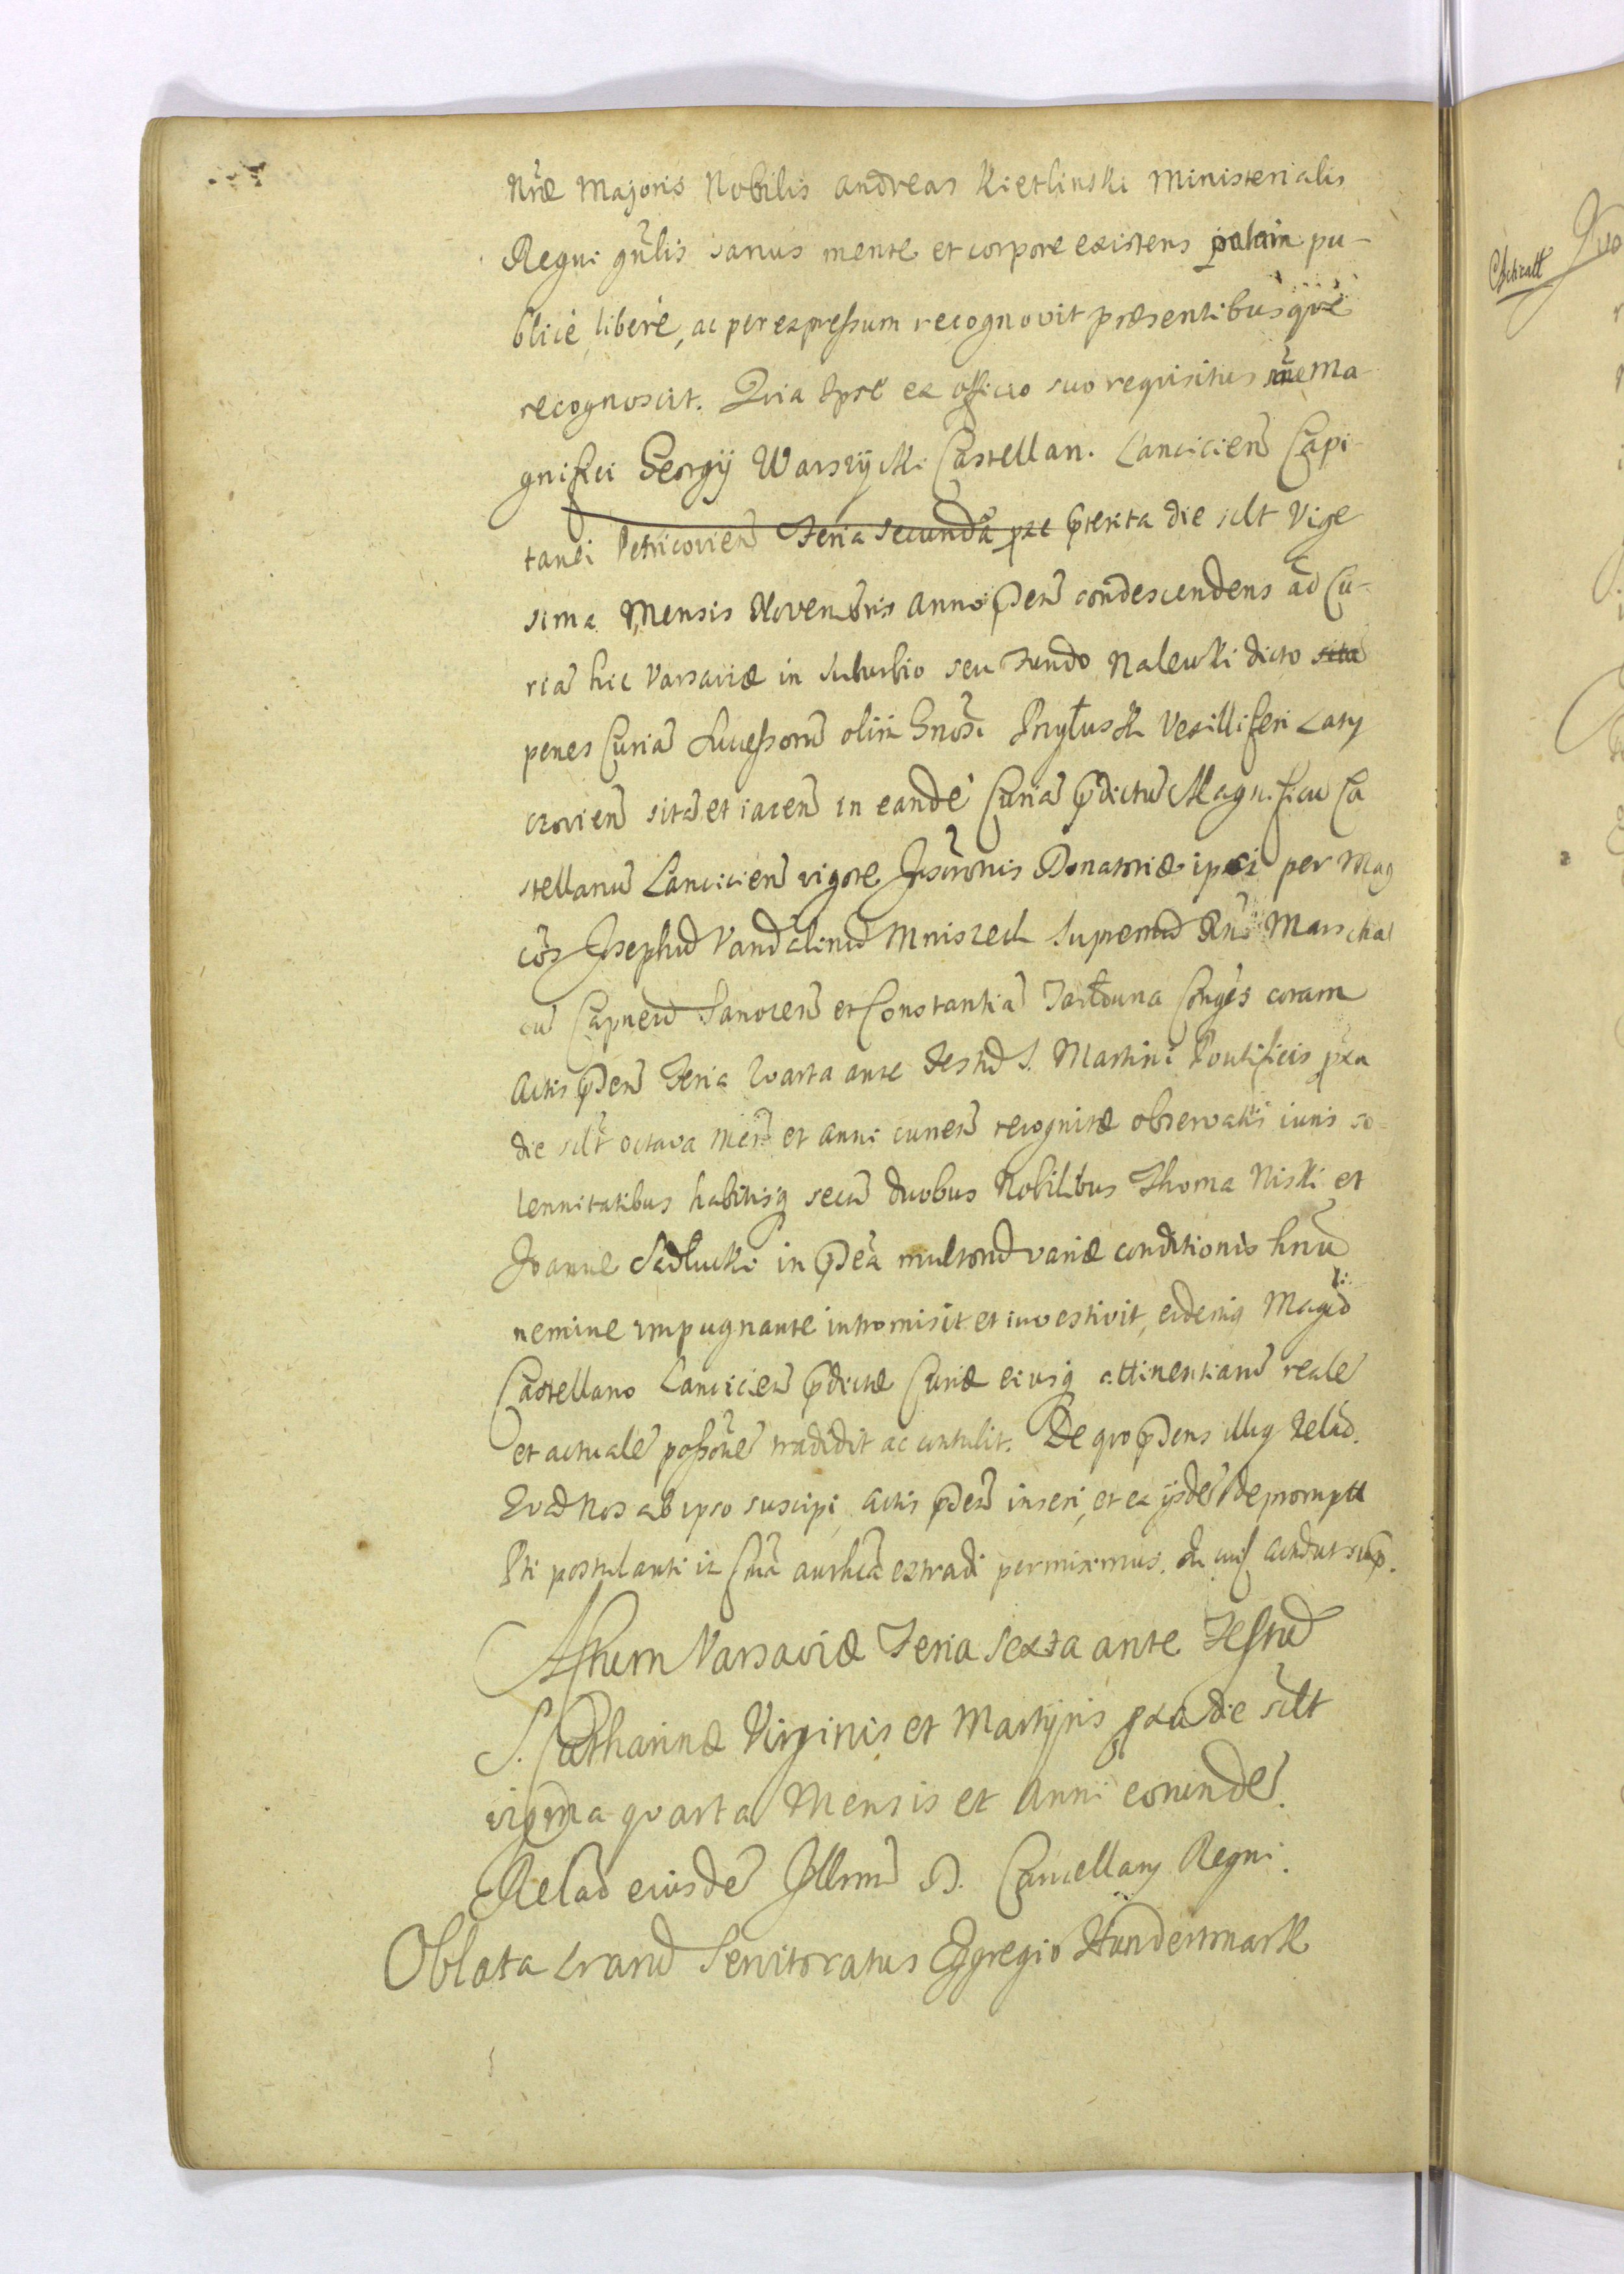 nr̃æ Majoris Nobilis Andreas Kietlinski Ministerialis
Regni gñlis sanus mente et corpore existens palam pu-
blicè, liberè, ac per expressum recognovit præsentibusque
recognoscit. Quia Ipse ex officio suo requisitus Ma-
gnifici Georgij Warszycki Castellan. Lanciciens̃ Capi-
tanei Petricoviens̃ Feria Secunda pxe p̃terita die scilt Vige
sima Mensis Novembris Anno p̃sen̄ condescendens ad Cu-
riã hic Varsaviæ in suburbio seu fundo Nalewki dicto sitã
penes Curiã Successorũ olim Gnõsi Przyłuski Vexilliferi Lary
czoviens̃ sitã et iacen̄ in eandẽ Curiã p̃dictũ Magnificũ Ca
stellanũ Lanciciens̃ vigore Inscr̃onis Donatoriæ ipsi per Mag
cõs Josephũ Vandalinũ Mniszech Supremũ Rñi Marschal
cũ Capneũ Sanocens̃ et Constantiã Tarłowna Conges coram
Actis p̃sen̄ Feria Quarta ante Festũ S. Martini Pontificis pxa
die scilt octava men̄s̃ et anni curren̄ recognitæ observatis iuris so-
lennitatibus habitisq secũ duobus Nobilibus Thoma Niski et
Joanne Sadłucki in p̃sẽa multorũ variæ conditionis hñũ
nemine impugnante intromisit et investivit, eidemq Magco
Castellano Lanciciens̃ p̃dictæ Curiæ eiusq attinentiarũ realẽ
et actualẽ possõnẽ tradidit ac contulit. De quo p̃sens illius Relaõ.
Quã Nos ab ipso suscipi, Actis p̃sen̄ inseri, et ex ijsdẽ depromptã
Pti postulanti in autheã extradi permisimus. In cuis Act ut sup.
Actum Varsaviæ Feria Sexta ante Festũ
S. Catharinæ Virginis et Martyris pxa die scilt
vigesma quarta Mensis et Anni eorundẽ.
Relaõ eiusdẽ Illrmĩ D. Cancellarij Regni.
Oblata Lrarũ Servitoratus Egregio Hundertmark